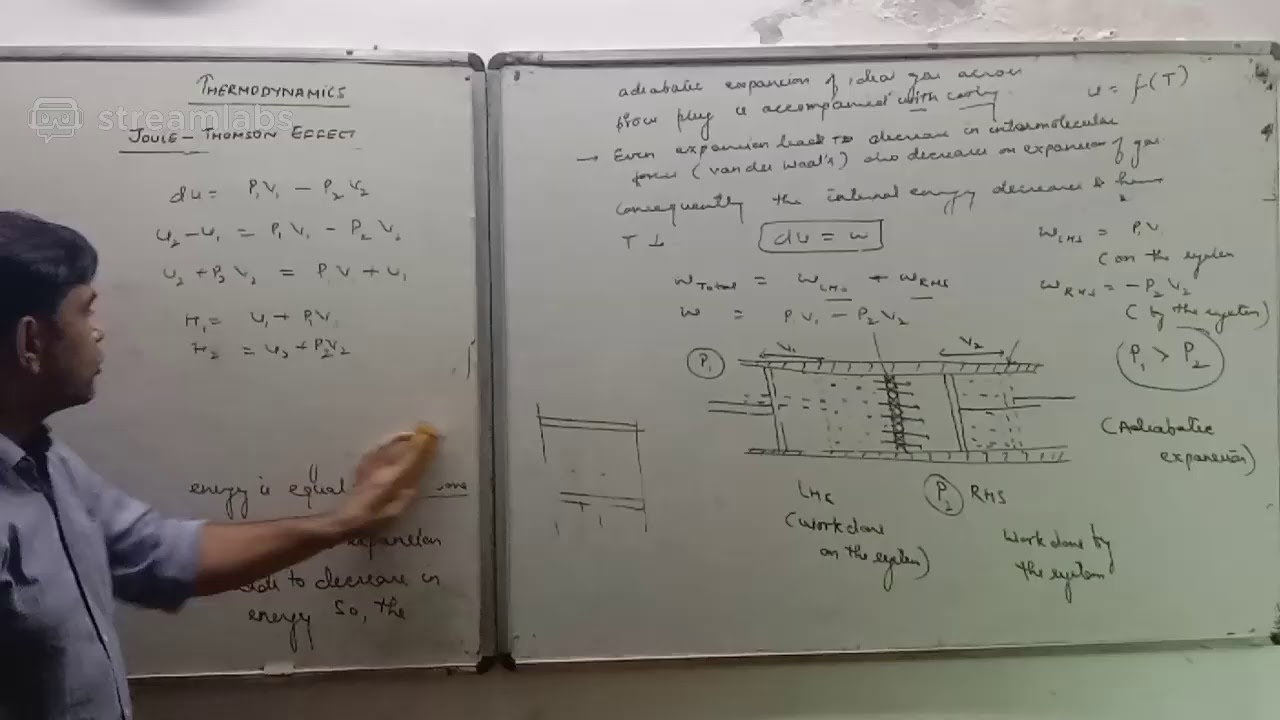 streamlabs
THERMODYNAMICS
JOULE-THOMSON EFFECT
du = P₁V₁ - P₂V₂
U₂-U₁ = P₁V₁ - P₂V₂
U₂+P₂V₂ = P₁V₁+U₁
H₁ = U₁+P₁V₁
H₂ = U₂+P₂V₂
energy is equal
expansion
to decrease in
energy so, the
adiabatic expansion of ideal gas across
plug is accompanied with
u = f(T)
→ Even expansion leads to decrease in intermolecular
forces (van der Waal's) also decrease on expansion of gas
Consequently the internal energy decreases &
T ↓
du = w
W LHS = P₁V₁
(on the system
W Total = W LHS + W RHS
W RHS = -P₂V₂
(by the system)
W = P₁V₁ - P₂V₂
P₁
V₁
V₂
P₁ > P₂
(Adiabatic
expansion)
LHS
P₂
RHS
(Work done
on the system)
Work done by
the system